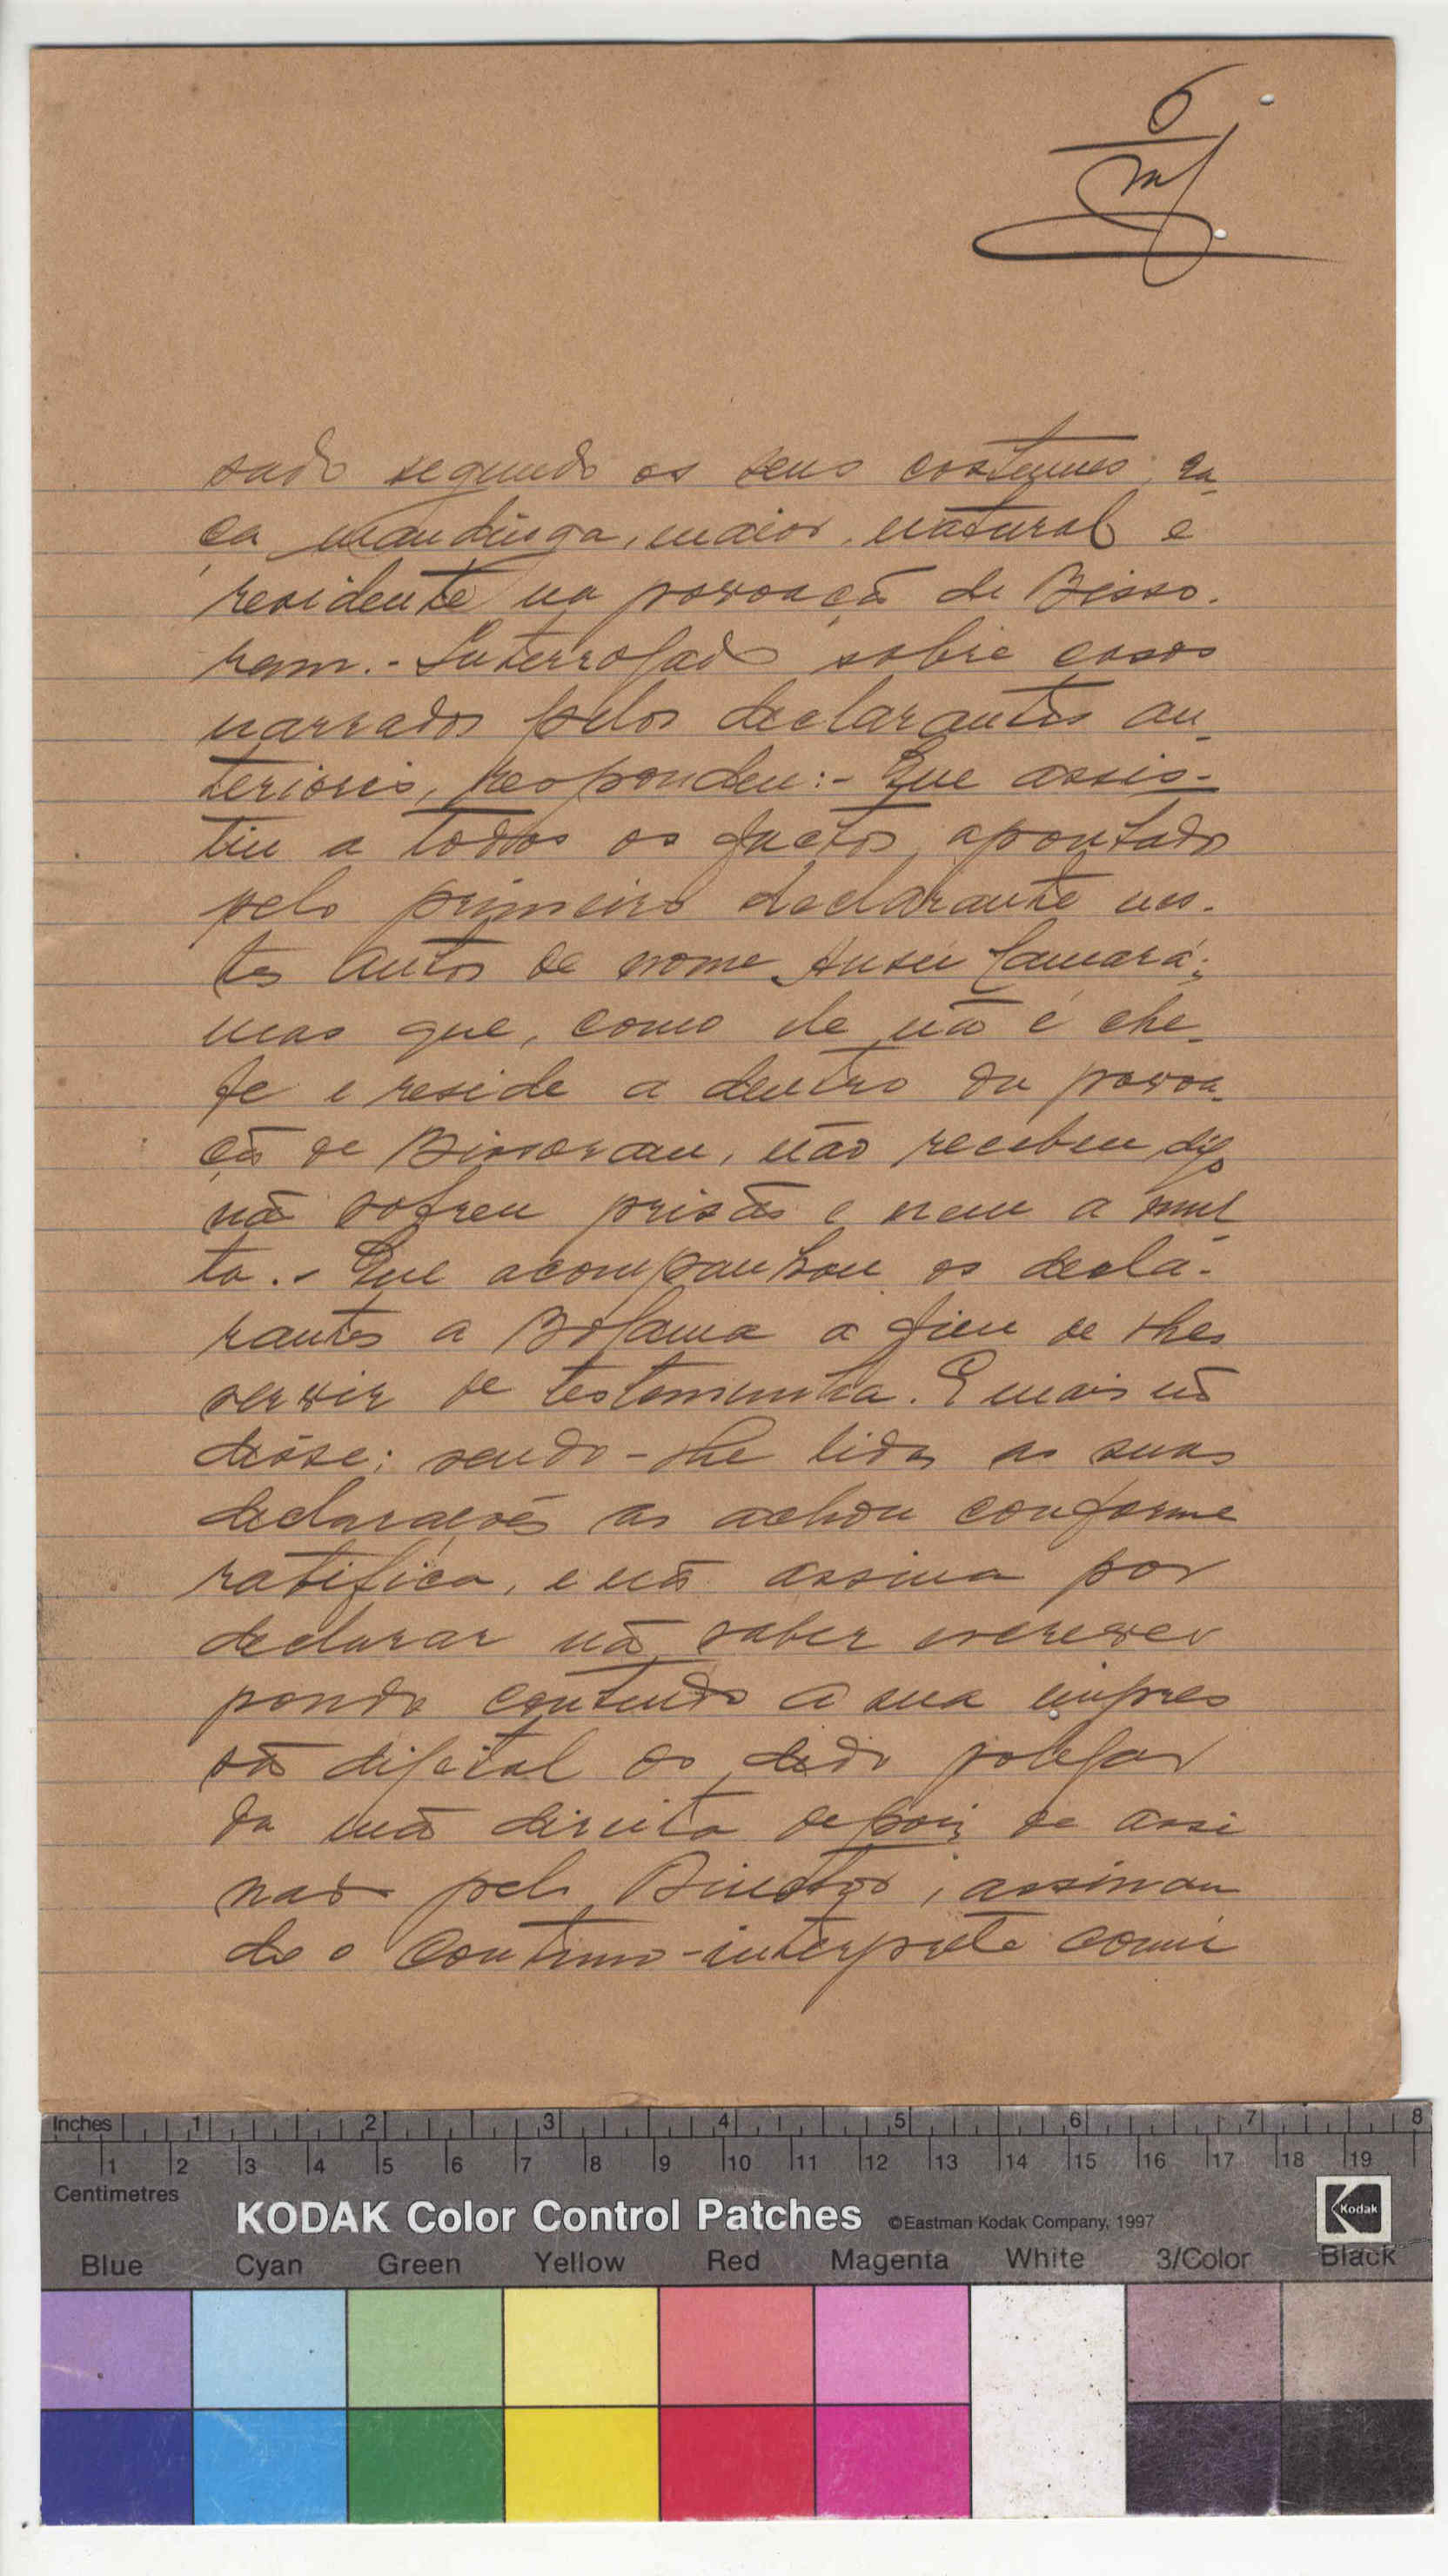 6
sado segundo os seus costumes, ra-
ça mandinga, maior, natural e
residente na povoação de Bisso-
ram.- Interrogado sobre casos
narrados pelos declarantes an-
teriores, respondeu:- Que assis-
tiu a todos os factos apontado
pelo primeiro declarante nes-
tes autos de nome Ansú Camará;
mas que, como ele não é che-
fe e reside a dentro da povoa-
ção de Bissoram, não recebeu digo
não sofreu prisão e nem a mul-
ta.- Que acompanhou os decla-
rantes a Bolama a fim de lhes
servir de testemunha. E mais não
disse; sendo-lhe lidas as suas
declarações as achou conforme
ratifica, e não assina por
declarar não saber escrever
pondo contudo a sua impres
são digital do dedo polegar
da mão direita depois de assi
nado pelo Director, assinan
do o contínuo-interprete comi
Inches 1 2 3 4 5 6 7 8
1 2 3 4 5 6 7 8 9 10 11 12 13 14 15 16 17 18 19
Centimetres
KODAK Color Control Patches ©Eastman Kodak Company, 1997 Kodak
Blue Cyan Green Yellow Red Magenta White 3/Color Black